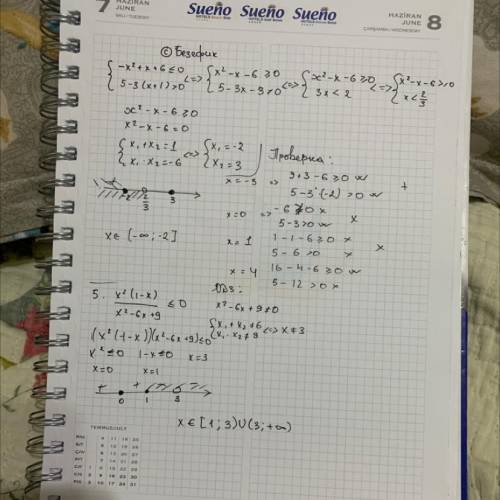 7 HAZİRAN JUNE
SALI / TUESDAY
Sueño Sueño Sueño
HAZİRAN JUNE 8
ÇARŞAMBA / WEDNESDAY
{-x²+x+6≤0 <=> {x²-x-6≥0 <=> {x²-x-6≥0 <=> {x²-x-6≥0
{5-3(x+1)>0 {5-3x-3>0 {3x<2 {x<2/3
x²-x-6≥0
x²-x-6=0
{x₁+x₂=1 <=> {x₁=-2
{x₁·x₂=-6 {x₂=3
-2 2/3 3
x∈(-∞;-2]
Проверка:
x=-3 => 9+3-6≥0
5-3·(-2)>0 +
x=0 => -6≱0 x
5-3>0 x
x=1 1-1-6≥0 x
5-6>0 x x
x=4 16-4-6≥0
5-12>0 x
5. x²(1-x)/x²-6x+9 ≤0
ОДЗ:
x²-6x+9≠0
{x₁+x₂≠6
{x₁·x₂≠9 <=> x≠3
(x²(1-x))(x²-6x+9)≤0
x²≤0 1-x≤0 x=3
x=0 x=1
+ +
0 1 3
x∈[1;3)∪(3;+∞)
TEMMUZ/JULY